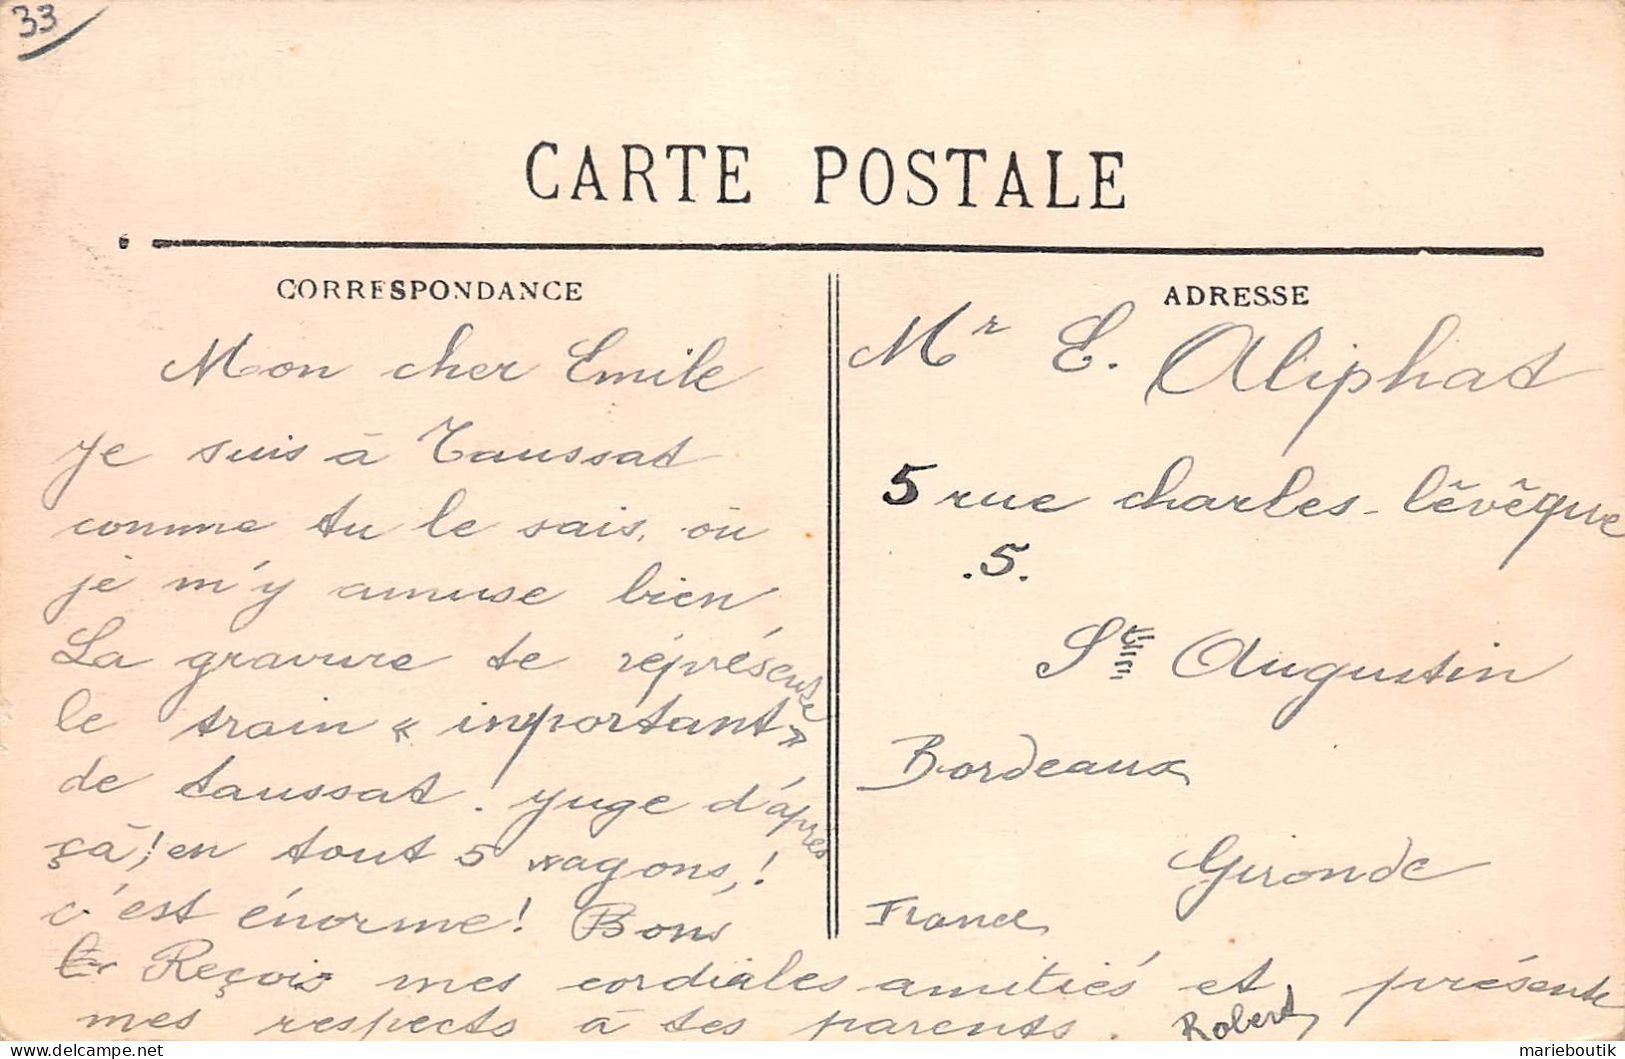 33
CARTE POSTALE
CORRESPONDANCE
Mon cher Emile
Je suis à Taussat
comme tu le sais, où
je m'y amuse bien
La gravure te réprésense
le train « inportant »
de taussat. Juge d'après
çà! en tout 5 wagons,!
c'est énorme! Bons
Reçois mes cordiales amitiés et présente
mes respects à tes parents. Robert
ADRESSE
Mr E. Aliphat
5 rue charles-lévêque
.5.
Ste Augustin
Bordeaux
Gironde
France
marieboutik